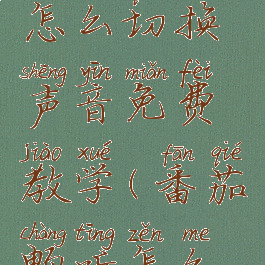 怎么切换
shēng yīn miǎn fèi
声音免费
jiào xué fān qié
教学(番茄
chàng tīng zěn me
畅听怎么